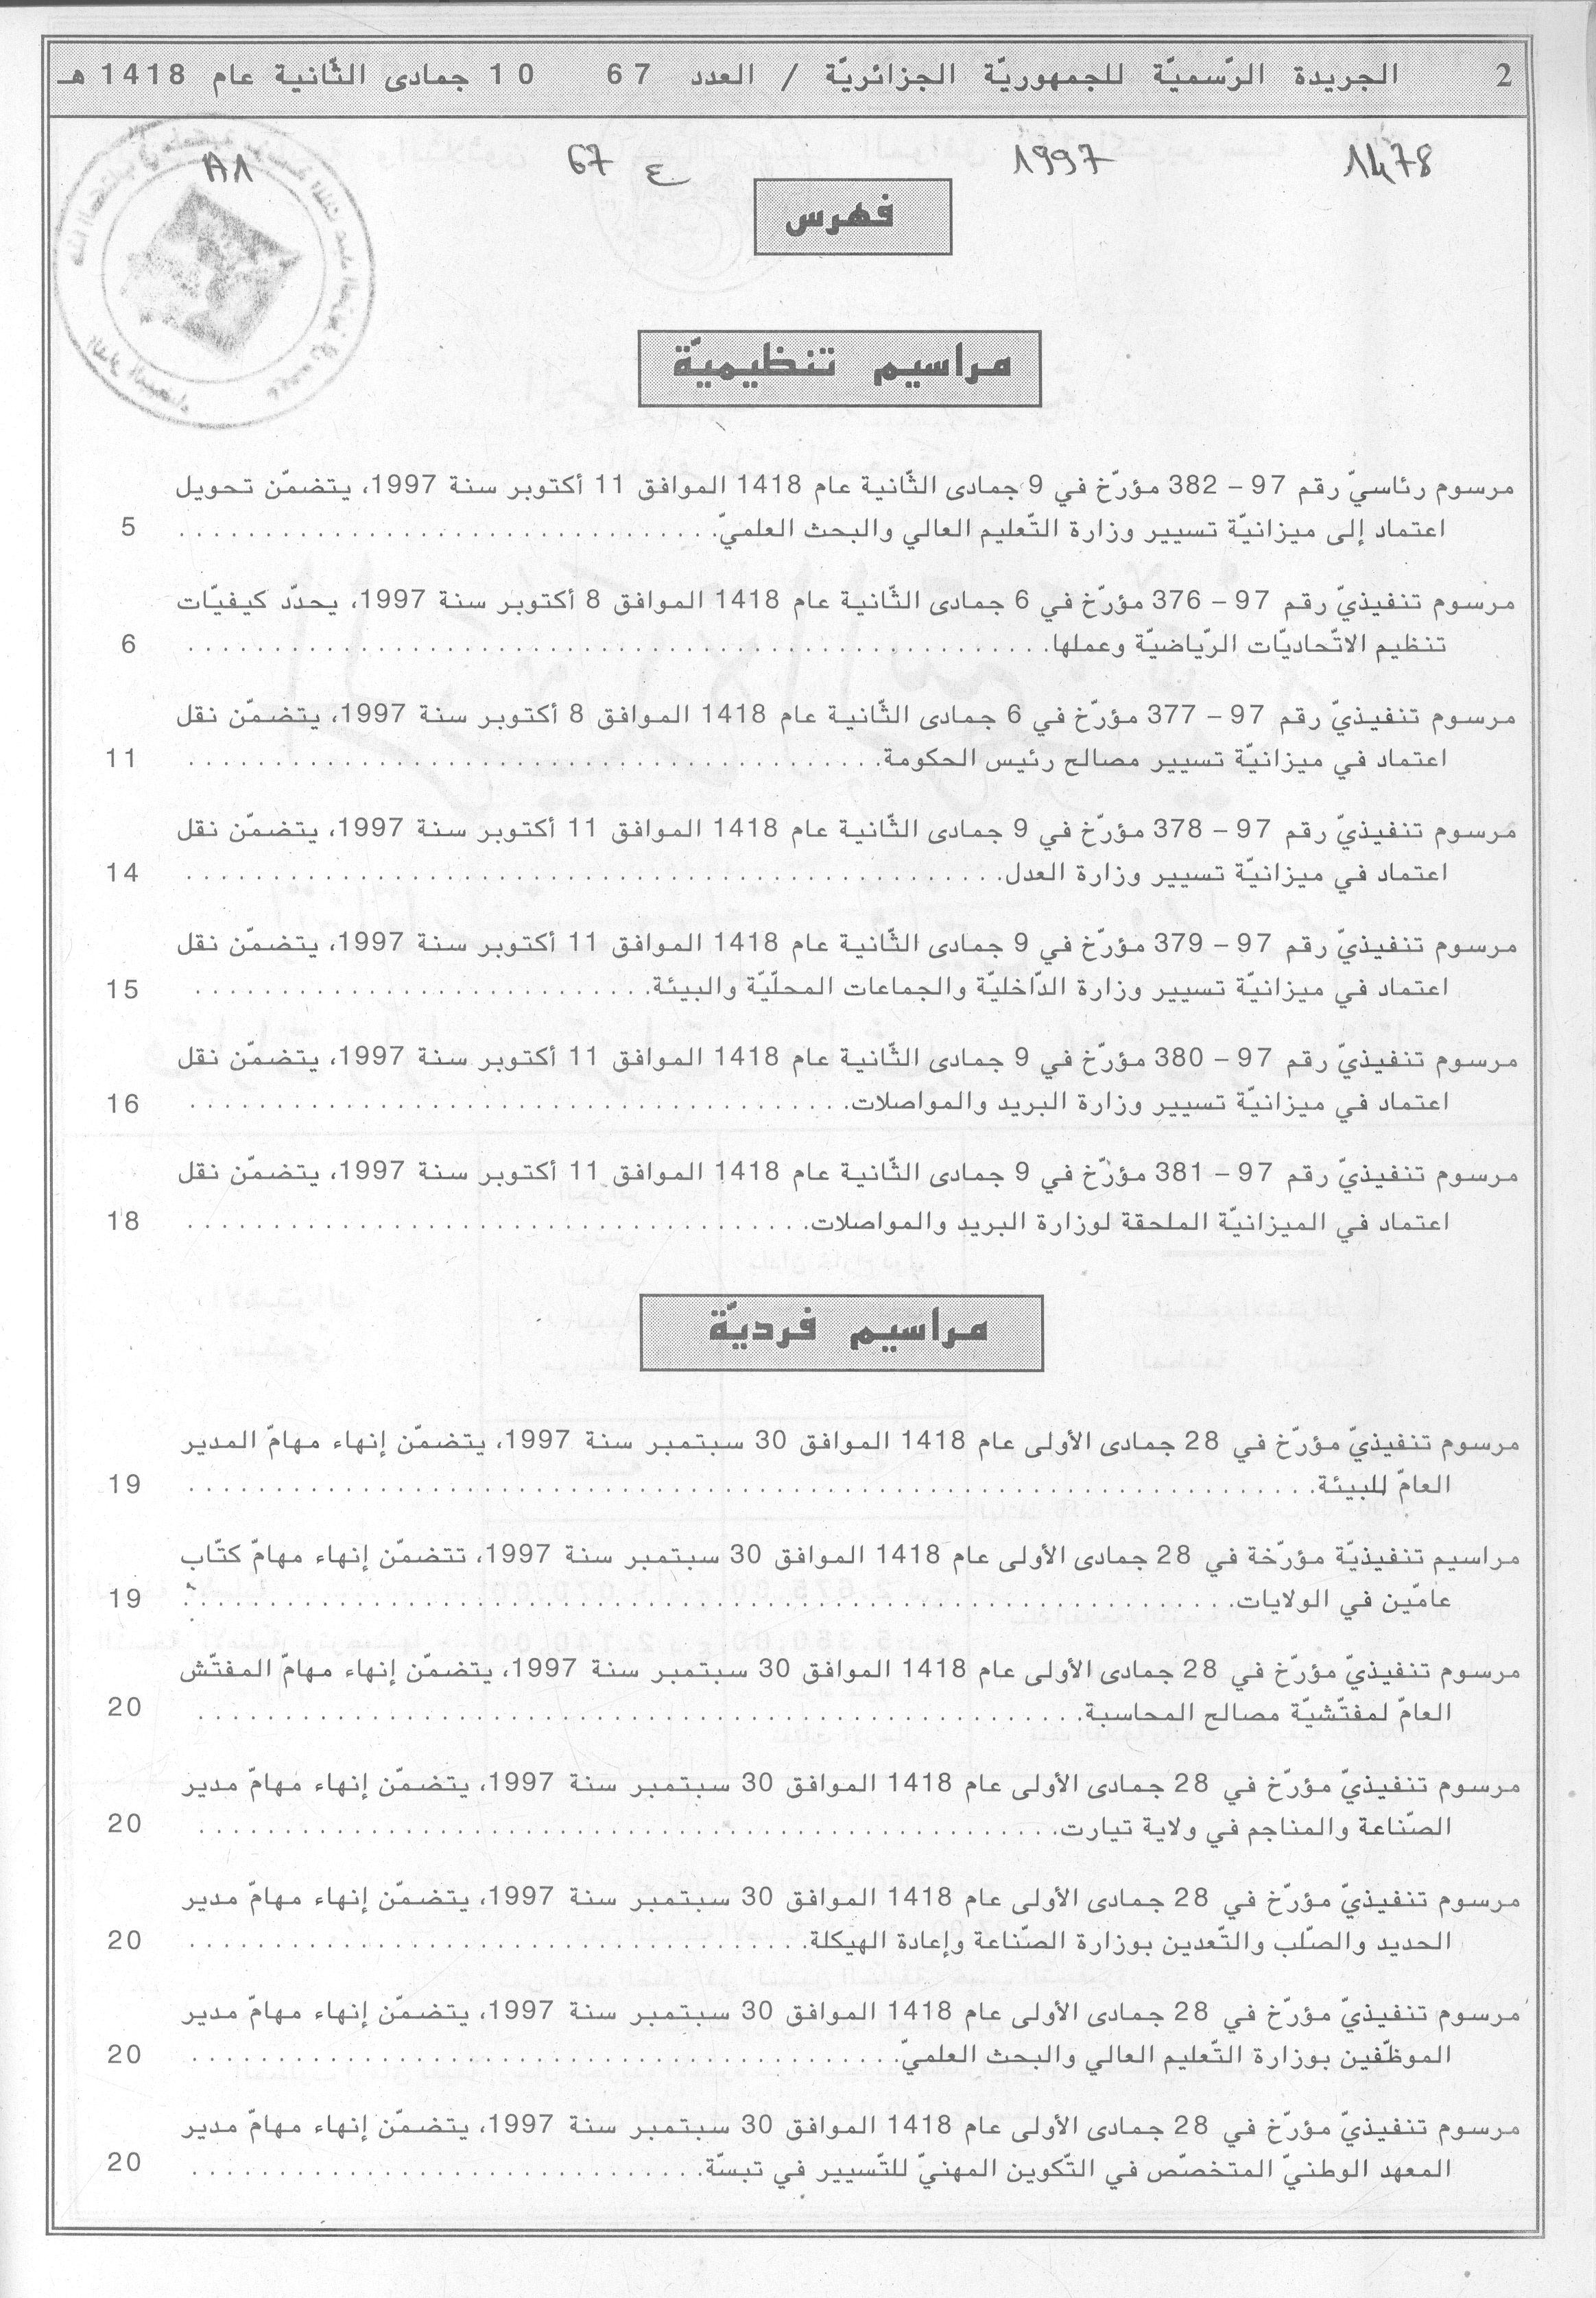 2 الجريدة الرّسميّة للجمهوريّة الجزائريّة / العدد 67 10 جمادى الثّانية عام 1418 هـ
1478 1997 ع 67 A1
فهرس
مراسيم تنظيميّة
مرسوم رئاسيّ رقم 97 – 382 مؤرّخ في 9 جمادى الثّانية عام 1418 الموافق 11 أكتوبر سنة 1997، يتضمّن تحويل
اعتماد إلى ميزانيّة تسيير وزارة التّعليم العالي والبحث العلميّ. 5
مرسوم تنفيذيّ رقم 97 – 376 مؤرّخ في 6 جمادى الثّانية عام 1418 الموافق 8 أكتوبر سنة 1997، يحدّد كيفيّات
تنظيم الاتّحاديّات الرّياضيّة وعملها. 6
مرسوم تنفيذيّ رقم 97 – 377 مؤرّخ في 6 جمادى الثّانية عام 1418 الموافق 8 أكتوبر سنة 1997، يتضمّن نقل
اعتماد في ميزانيّة تسيير مصالح رئيس الحكومة. 11
مرسوم تنفيذيّ رقم 97 – 378 مؤرّخ في 9 جمادى الثّانية عام 1418 الموافق 11 أكتوبر سنة 1997، يتضمّن نقل
اعتماد في ميزانيّة تسيير وزارة العدل. 14
مرسوم تنفيذيّ رقم 97 – 379 مؤرّخ في 9 جمادى الثّانية عام 1418 الموافق 11 أكتوبر سنة 1997، يتضمّن نقل
اعتماد في ميزانيّة تسيير وزارة الدّاخليّة والجماعات المحلّيّة والبيئة. 15
مرسوم تنفيذيّ رقم 97 – 380 مؤرّخ في 9 جمادى الثّانية عام 1418 الموافق 11 أكتوبر سنة 1997، يتضمّن نقل
اعتماد في ميزانيّة تسيير وزارة البريد والمواصلات. 16
مرسوم تنفيذيّ رقم 97 – 381 مؤرّخ في 9 جمادى الثّانية عام 1418 الموافق 11 أكتوبر سنة 1997، يتضمّن نقل
اعتماد في الميزانيّة الملحقة لوزارة البريد والمواصلات. 18
مراسيم فرديّة
مرسوم تنفيذيّ مؤرّخ في 28 جمادى الأولى عام 1418 الموافق 30 سبتمبر سنة 1997، يتضمّن إنهاء مهامّ المدير
العامّ للبيئة. 19
مراسيم تنفيذيّة مؤرّخة في 28 جمادى الأولى عام 1418 الموافق 30 سبتمبر سنة 1997، تتضمّن إنهاء مهامّ كتّاب
عامّين في الولايات. 19
مرسوم تنفيذيّ مؤرّخ في 28 جمادى الأولى عام 1418 الموافق 30 سبتمبر سنة 1997، يتضمّن إنهاء مهامّ المفتّش
العامّ لمفتّشيّة مصالح المحاسبة. 20
مرسوم تنفيذيّ مؤرّخ في 28 جمادى الأولى عام 1418 الموافق 30 سبتمبر سنة 1997، يتضمّن إنهاء مهامّ مدير
الصّناعة والمناجم في ولاية تيارت. 20
مرسوم تنفيذيّ مؤرّخ في 28 جمادى الأولى عام 1418 الموافق 30 سبتمبر سنة 1997، يتضمّن إنهاء مهامّ مدير
الحديد والصّلب والتّعدين بوزارة الصّناعة وإعادة الهيكلة. 20
مرسوم تنفيذيّ مؤرّخ في 28 جمادى الأولى عام 1418 الموافق 30 سبتمبر سنة 1997، يتضمّن إنهاء مهامّ مدير
الموظّفين بوزارة التّعليم العالي والبحث العلميّ. 20
مرسوم تنفيذيّ مؤرّخ في 28 جمادى الأولى عام 1418 الموافق 30 سبتمبر سنة 1997، يتضمّن إنهاء مهامّ مدير
المعهد الوطنيّ المتخصّص في التّكوين المهنيّ للتّسيير في تبسّة. 20